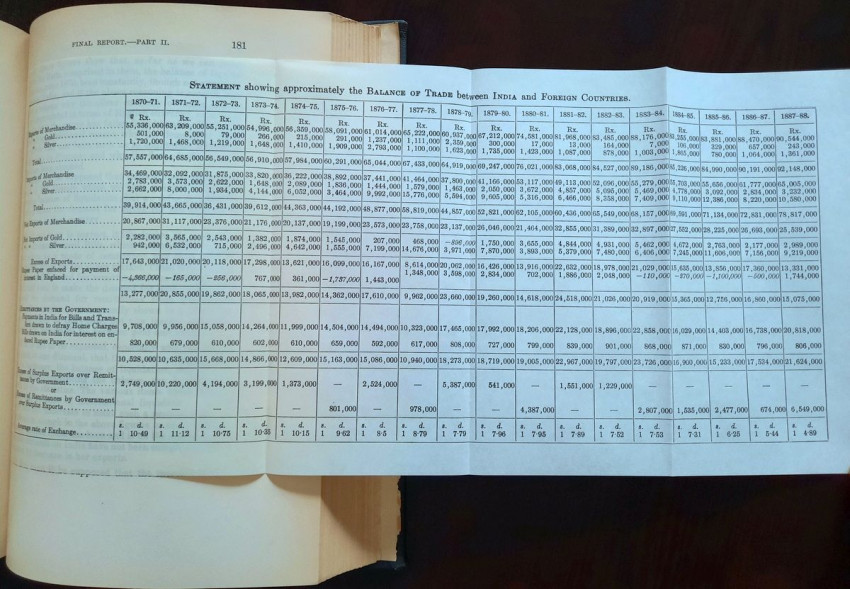 FINAL REPORT.—PART II. 181
STATEMENT showing approximately the BALANCE OF TRADE between INDIA and FOREIGN COUNTRIES.
1870-71. 1871-72. 1872-73. 1873-74. 1874-75. 1875-76. 1876-77. 1877-78. 1878-79. 1879-80. 1880-81. 1881-82. 1882-83. 1883-84. 1884-85. 1885-86. 1886-87. 1887-88.
Rx. Rx. Rx. Rx. Rx. Rx. Rx. Rx. Rx. Rx. Rx. Rx. Rx. Rx. Rx. Rx. Rx. Rx.
of Merchandise 55,336,000 63,209,000 55,251,000 54,996,000 56,359,000 58,091,000 61,014,000 65,222,000 60,937,000 67,212,000 74,581,000 81,968,000 83,485,000 88,176,000 83,255,000 83,881,000 88,470,000 90,544,000
" Gold 501,000 8,000 79,000 266,000 215,000 291,000 1,237,000 1,111,000 2,359,000 300,000 17,000 13,000 164,000 7,000 106,000 329,000 657,000 243,000
" Silver 1,720,000 1,468,000 1,219,000 1,648,000 1,410,000 1,909,000 2,793,000 1,100,000 1,623,000 1,735,000 1,423,000 1,087,000 878,000 1,003,000 1,865,000 780,000 1,064,000 1,361,000
Total 57,557,000 64,685,000 56,549,000 56,910,000 57,984,000 60,291,000 65,044,000 67,433,000 64,919,000 69,247,000 76,021,000 83,068,000 84,527,000 89,186,000 85,226,000 84,990,000 90,191,000 92,148,000
of Merchandise 34,469,000 32,092,000 31,875,000 33,820,000 36,222,000 38,892,000 37,441,000 41,464,000 37,800,000 41,166,000 53,117,000 49,113,000 52,096,000 55,279,000 55,703,000 55,656,000 61,777,000 65,005,000
" Gold 2,783,000 3,573,000 2,622,000 1,648,000 2,089,000 1,836,000 1,444,000 1,579,000 1,463,000 2,050,000 3,672,000 4,857,000 5,095,000 5,469,000 4,778,000 3,092,000 2,834,000 3,232,000
" Silver 2,662,000 8,000,000 1,934,000 4,144,000 6,052,000 3,464,000 9,992,000 15,776,000 5,594,000 9,605,000 5,316,000 6,466,000 8,358,000 7,409,000 9,110,000 12,386,000 8,220,000 10,580,000
39,914,000 43,665,000 36,431,000 39,612,000 44,363,000 44,192,000 48,877,000 58,819,000 44,857,000 52,821,000 62,105,000 60,436,000 65,549,000 68,157,000 69,591,000 71,134,000 72,831,000 78,817,000
Exports of Merchandise 20,867,000 31,117,000 23,376,000 21,176,000 20,137,000 19,199,000 23,573,000 23,758,000 23,137,000 26,046,000 21,464,000 32,855,000 31,389,000 32,897,000 27,552,000 28,225,000 26,693,000 25,539,000
Imports of Gold 2,282,000 3,565,000 2,543,000 1,382,000 1,874,000 1,545,000 207,000 468,000 —896,000 1,750,000 3,655,000 4,844,000 4,931,000 5,462,000 4,672,000 2,763,000 2,177,000 2,989,000
" Silver 942,000 6,532,000 715,000 2,496,000 4,642,000 1,555,000 7,199,000 14,676,000 3,971,000 7,870,000 3,893,000 5,379,000 7,480,000 6,406,000 7,245,000 11,606,000 7,156,000 9,219,000
Excess of Exports 17,643,000 21,020,000 20,118,000 17,298,000 13,621,000 16,099,000 16,167,000 8,614,000 20,062,000 16,426,000 13,916,000 22,632,000 18,978,000 21,029,000 15,635,000 13,856,000 17,360,000 13,331,000
Rupee Paper enfaced for payment of
interest in England —4,366,000 —165,000 —256,000 767,000 361,000 —1,737,000 1,443,000 1,348,000 3,598,000 2,834,000 702,000 1,886,000 2,048,000 —110,000 —270,000 —1,100,000 —500,000 1,744,000
13,277,000 20,855,000 19,862,000 18,065,000 13,982,000 14,362,000 17,610,000 9,962,000 23,660,000 19,260,000 14,618,000 24,518,000 21,026,000 20,919,000 15,365,000 12,756,000 16,860,000 15,075,000
REMITTANCES BY THE GOVERNMENT:
Payments in India for Bills and Trans-
fers drawn to defray Home Charges 9,708,000 9,956,000 15,058,000 14,264,000 11,999,000 14,504,000 14,494,000 10,323,000 17,465,000 17,992,000 18,206,000 22,128,000 18,896,000 22,858,000 16,029,000 14,403,000 16,738,000 20,818,000
Bills drawn on India for interest on en-
faced Rupee Paper 820,000 679,000 610,000 602,000 610,000 659,000 592,000 617,000 808,000 727,000 799,000 839,000 901,000 868,000 871,000 830,000 796,000 806,000
10,528,000 10,635,000 15,668,000 14,866,000 12,609,000 15,163,000 15,086,000 10,940,000 18,273,000 18,719,000 19,005,000 22,967,000 19,797,000 23,726,000 16,900,000 15,233,000 17,534,000 21,624,000
Excess of Surplus Exports over Remit-
tances by Government 2,749,000 10,220,000 4,194,000 3,199,000 1,373,000 — 2,524,000 — 5,387,000 541,000 — 1,551,000 1,229,000 — — — — —
or
Excess of Remittances by Government
over Surplus Exports — — — — — 801,000 — 978,000 — — 4,387,000 — — 2,807,000 1,535,000 2,477,000 674,000 6,549,000
s. d. s. d. s. d. s. d. s. d. s. d. s. d. s. d. s. d. s. d. s. d. s. d. s. d. s. d. s. d. s. d. s. d. s. d.
Average rate of Exchange 1 10·49 1 11·12 1 10·75 1 10·35 1 10·15 1 9·62 1 8·5 1 8·79 1 7·79 1 7·96 1 7·95 1 7·89 1 7·52 1 7·53 1 7·31 1 6·25 1 5·44 1 4·89